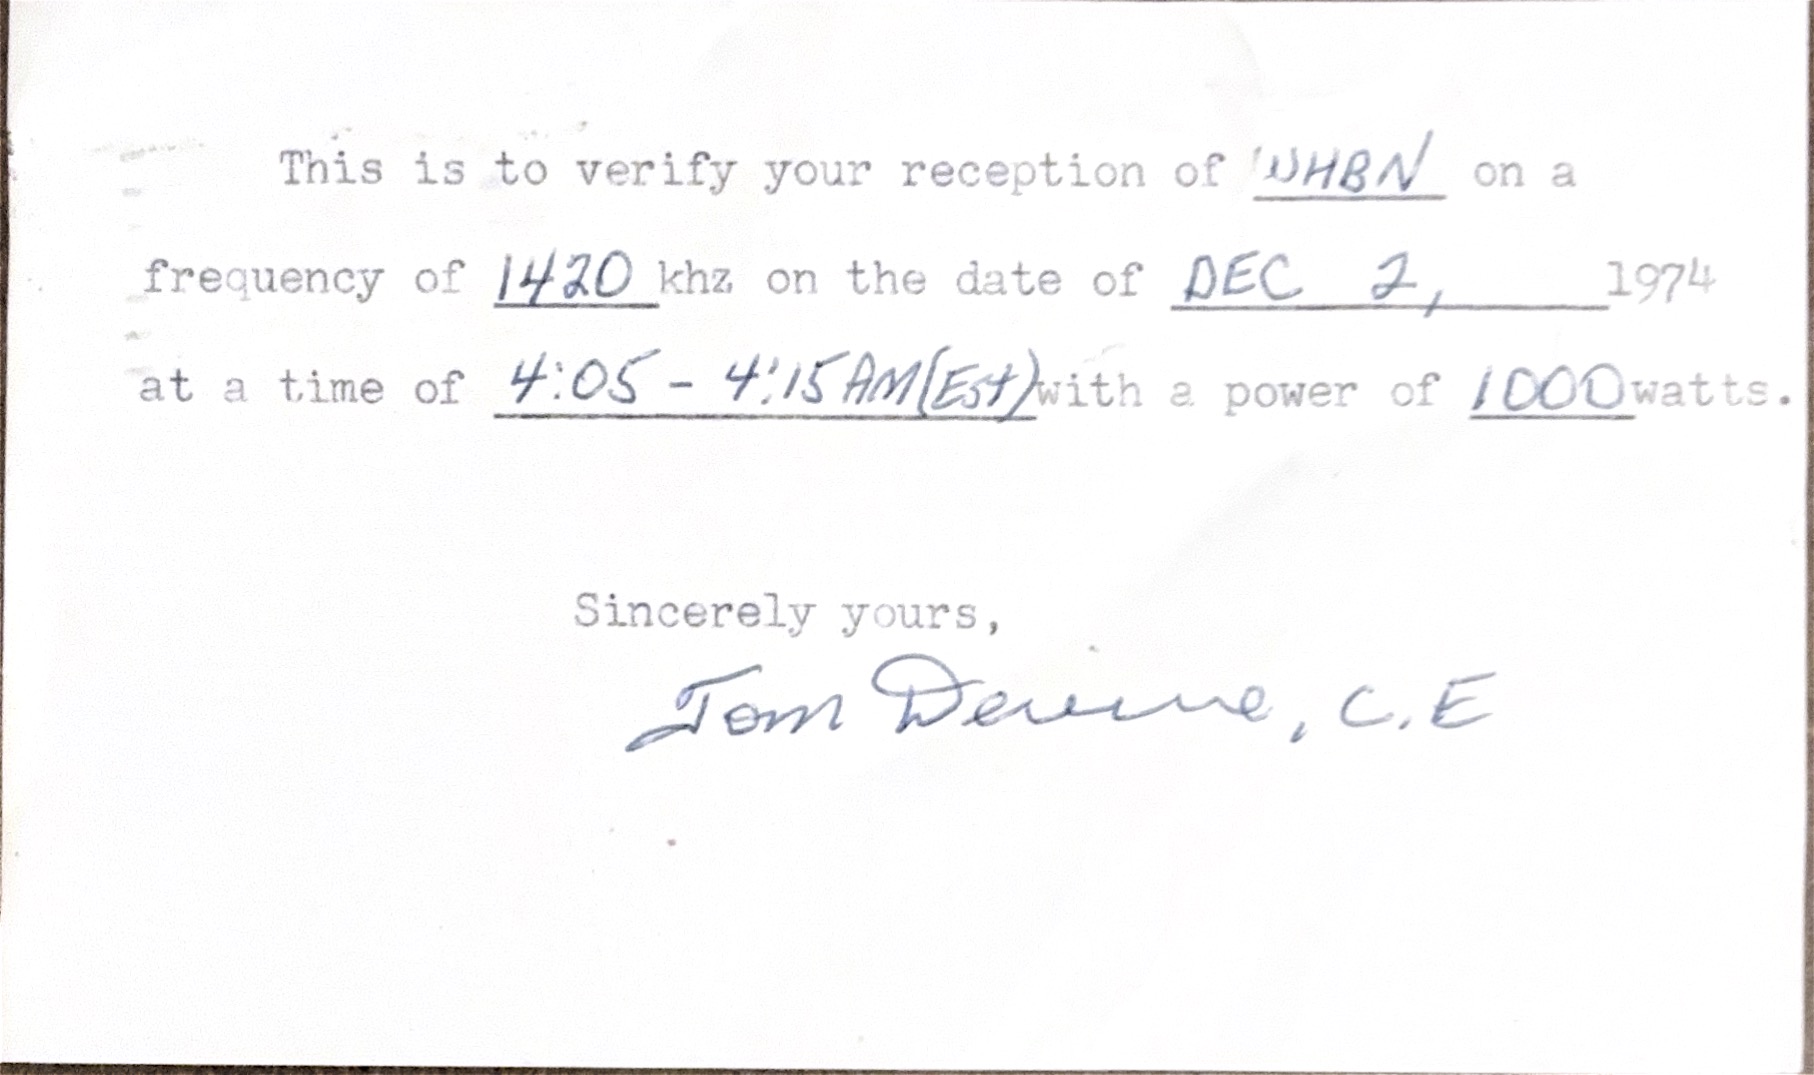 This is to verify your reception of WHBN on a
frequency of 1420 khz on the date of DEC 2, 1974
at a time of 4:05 - 4:15 AM (Est) with a power of 1000 watts.
Sincerely yours,
Tom , C.E